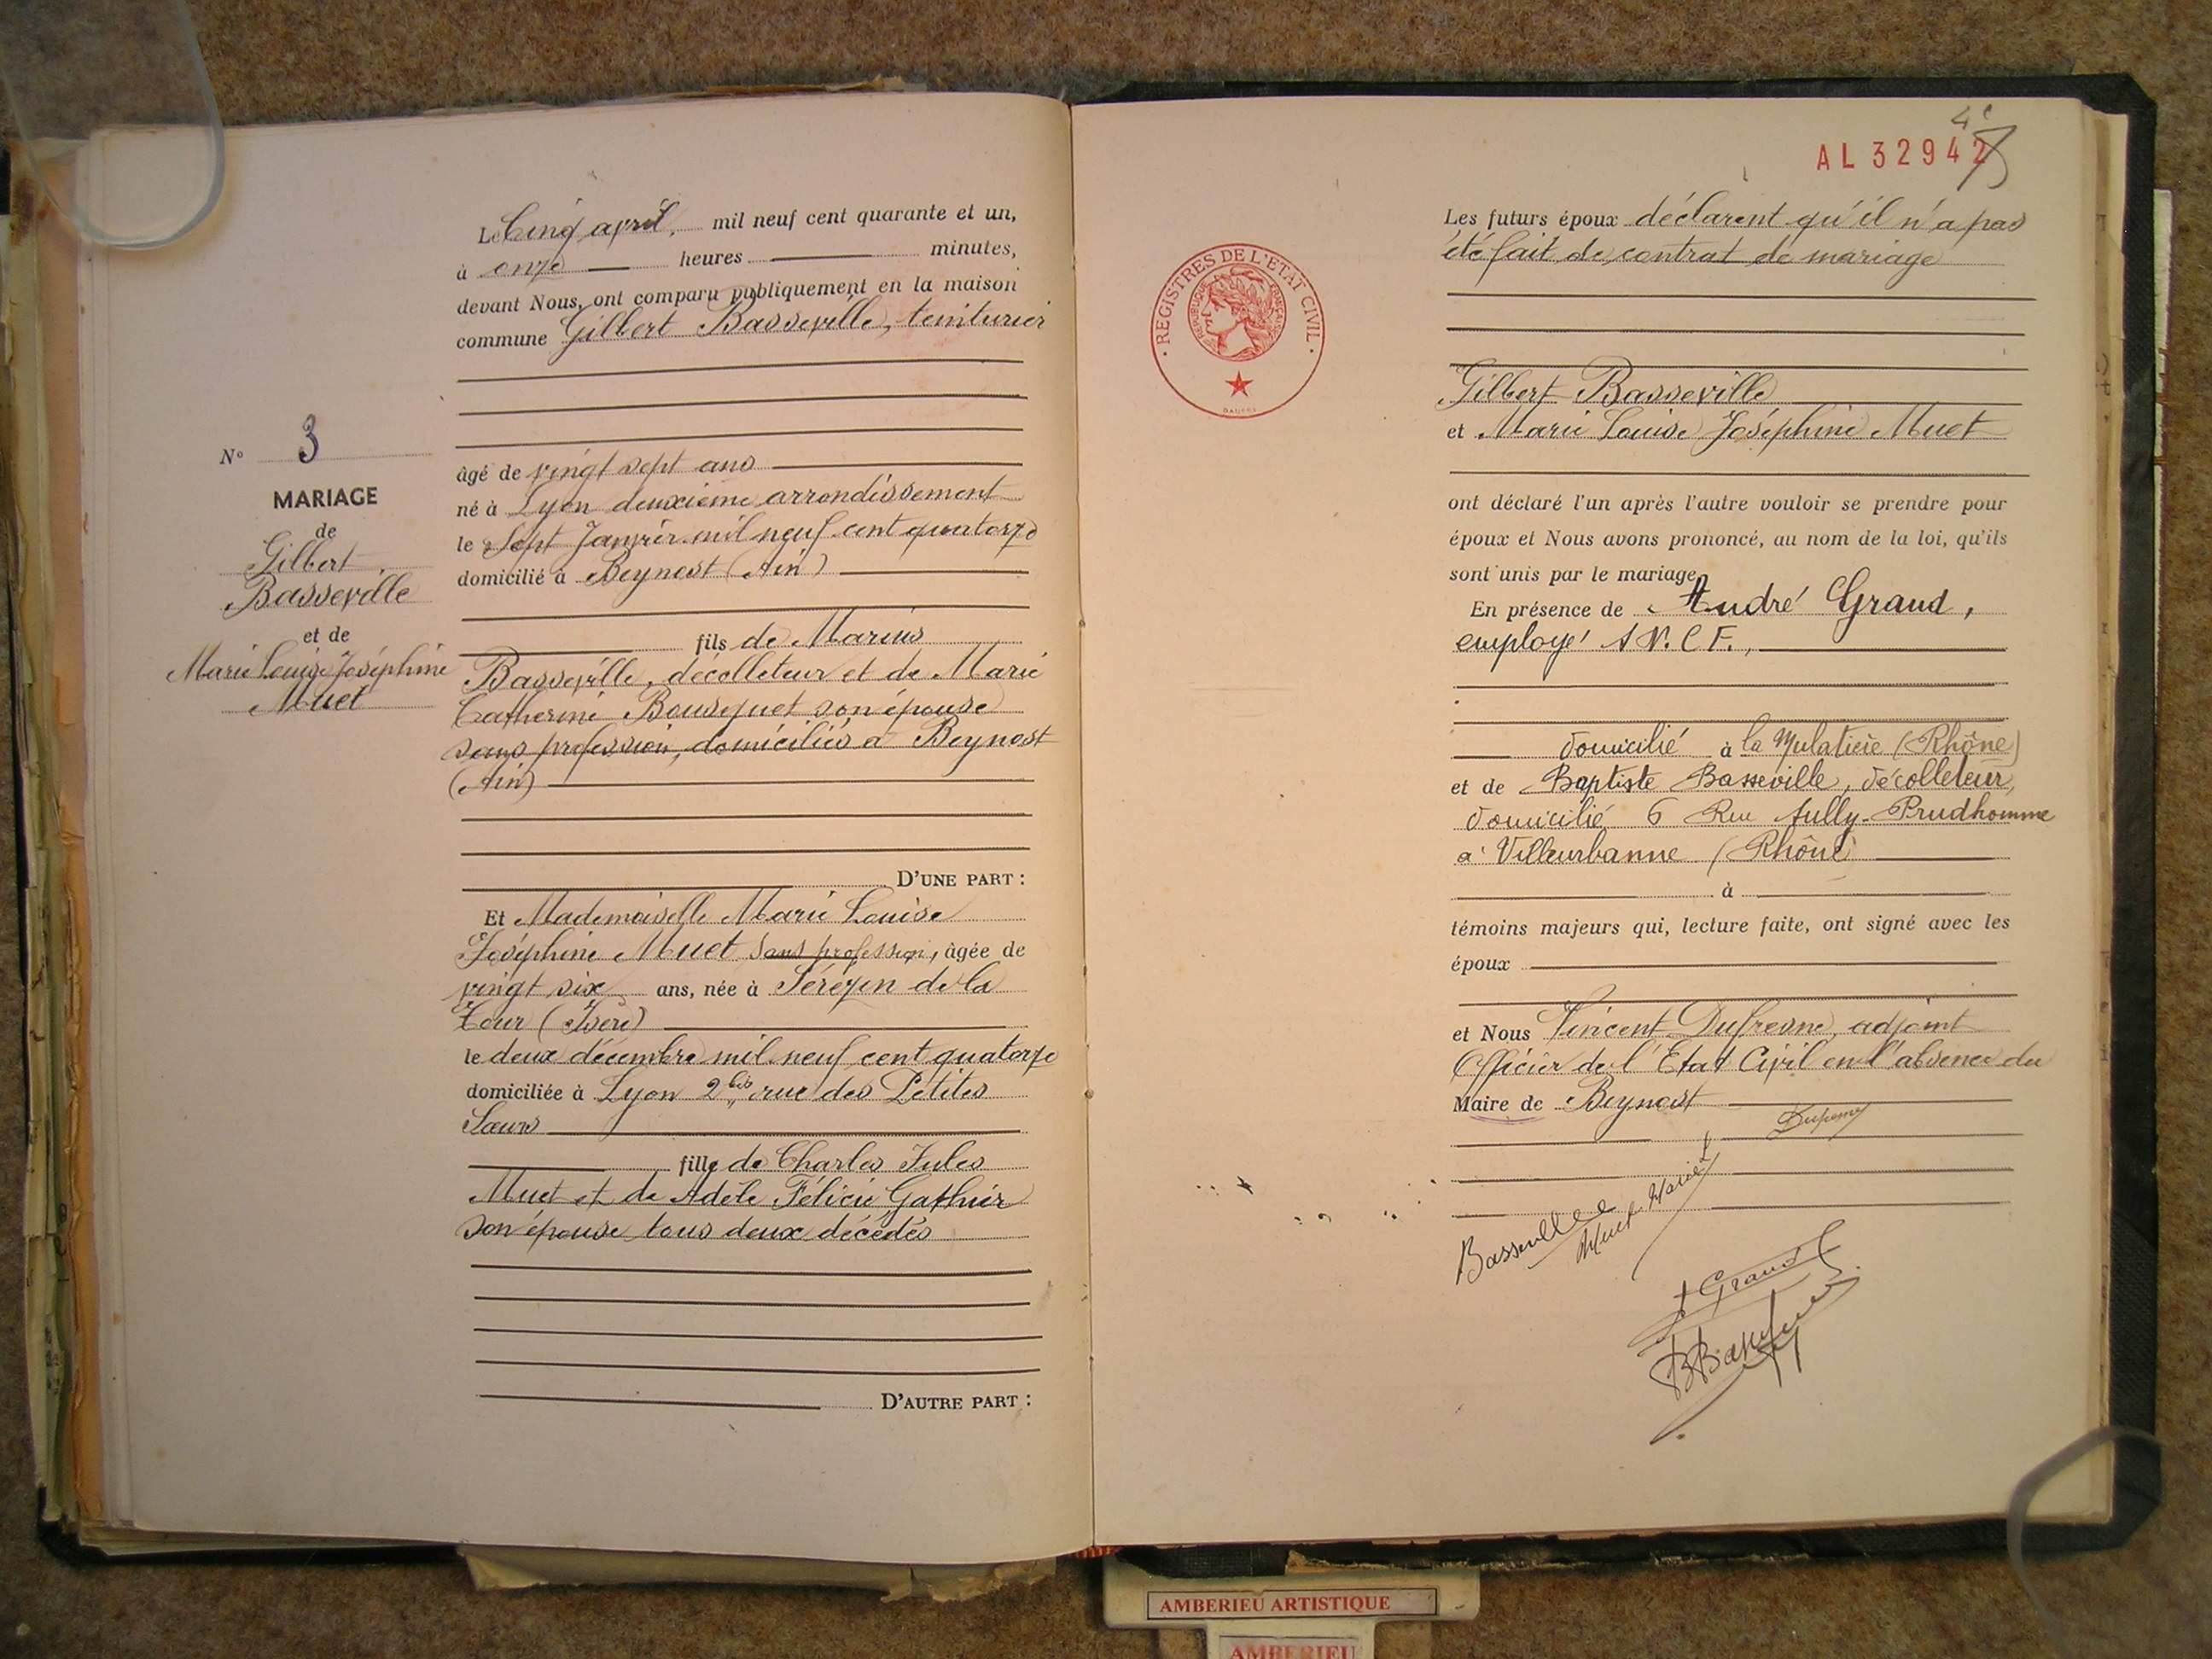 Le Cinq avril, mil neuf cent quarante et un,
à onze heures minutes,
devant Nous, ont comparu publiquement en la maison
commune Gilbert Basseville, teinturier
N° 3
MARIAGE
de
Gilbert
Basseville
et de
Marie Louise Joséphine
Muet
âgé de vingt sept ans
né à Lyon deuxième arrondissement
le Sept Janvier mil neuf cent quatorze
domicilié à Beynost (Ain)
fils de Marius
Basseville, décolleteur et de Marie
Catherine Bousquet son épouse
sans profession, domiciliés à Beynost
(Ain)
D'UNE PART :
Et Mademoiselle Marie Louise
Joséphine Muet sans profession, âgée de
vingt six ans, née à Sérézin de la
Tour (Isère)
le deux décembre mil neuf cent quatorze
domiciliée à Lyon 2 bis rue des Petites
Sœurs
fille de Charles Jules
Muet et de Adèle Félicie Gathier
son épouse tous deux décédés
D'AUTRE PART :
AL 32942
REGISTRES DE L'ETAT CIVIL
REPUBLIQUE FRANÇAISE
Les futurs époux déclarent qu'il n'a pas
été fait de contrat de mariage
Gilbert Basseville
et Marie Louise Joséphine Muet
ont déclaré l'un après l'autre vouloir se prendre pour
époux et Nous avons prononcé, au nom de la loi, qu'ils
sont unis par le mariage,
En présence de André Graud,
employé S.N.C.F.,
domicilié à la Mulatière (Rhône)
et de Baptiste Basseville, décolleteur,
domicilié 6 Rue Sully-Prudhomme
à Villeurbanne (Rhône)
à
témoins majeurs qui, lecture faite, ont signé avec les
époux
et Nous Vincent Dufresne, adjoint
Officier de l'Etat Civil en l'absence du
Maire de Beynost
Basseville
Muet Marie
Graud
AMBERIEU ARTISTIQUE
AMBERIEU